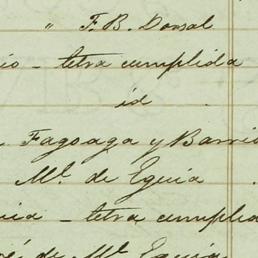 " F. B. Dorsal
io - letra cumplida
id
Fagoaga y Barrio
Ml. de Eguia
uia - letra cumplida
de Ml. Eguia